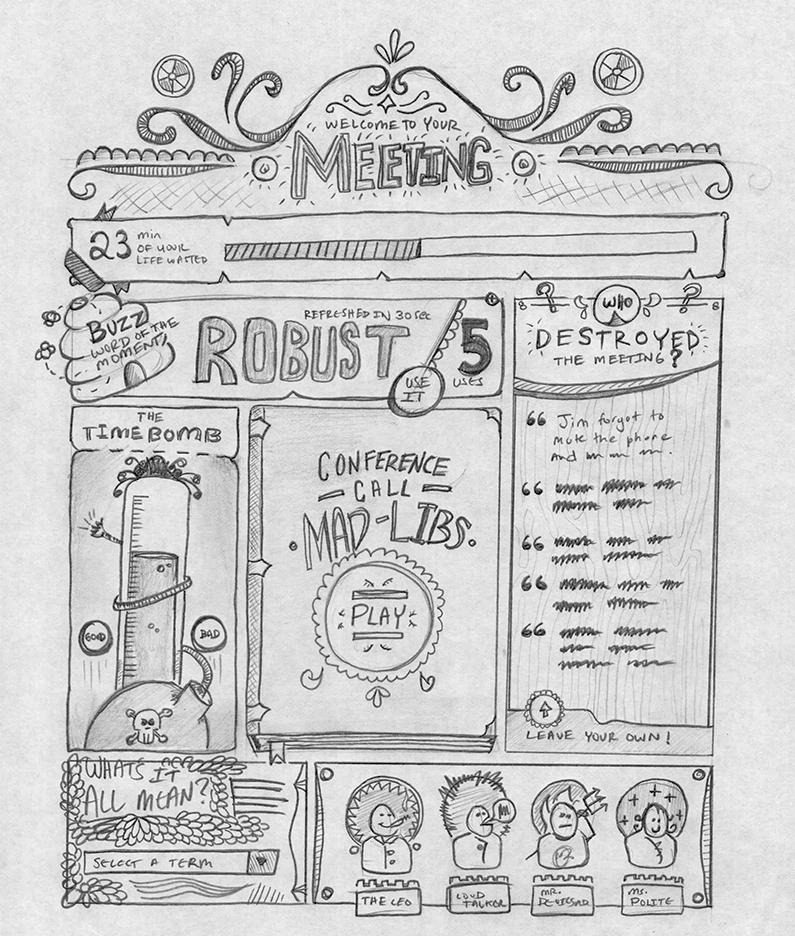 WELCOME TO YOUR
MEETING
23 min
OF YOUR
LIFE WASTED
BUZZ
WORD OF THE
MOMENT!
REFRESHED IN 30 SEC
ROBUST
USE
IT
5
USES
WHO
DESTROYED
THE MEETING?
“ Jim forgot to
mute the phone
and
“
“
“
“
LEAVE YOUR OWN!
THE
TIME BOMB
GOOD
BAD
CONFERENCE
- CALL -
MAD-LIBS.
PLAY
WHATS IT
ALL MEAN?
SELECT A TERM
THE CEO
LOUD
TALKER
MR.
MS.
POLITE